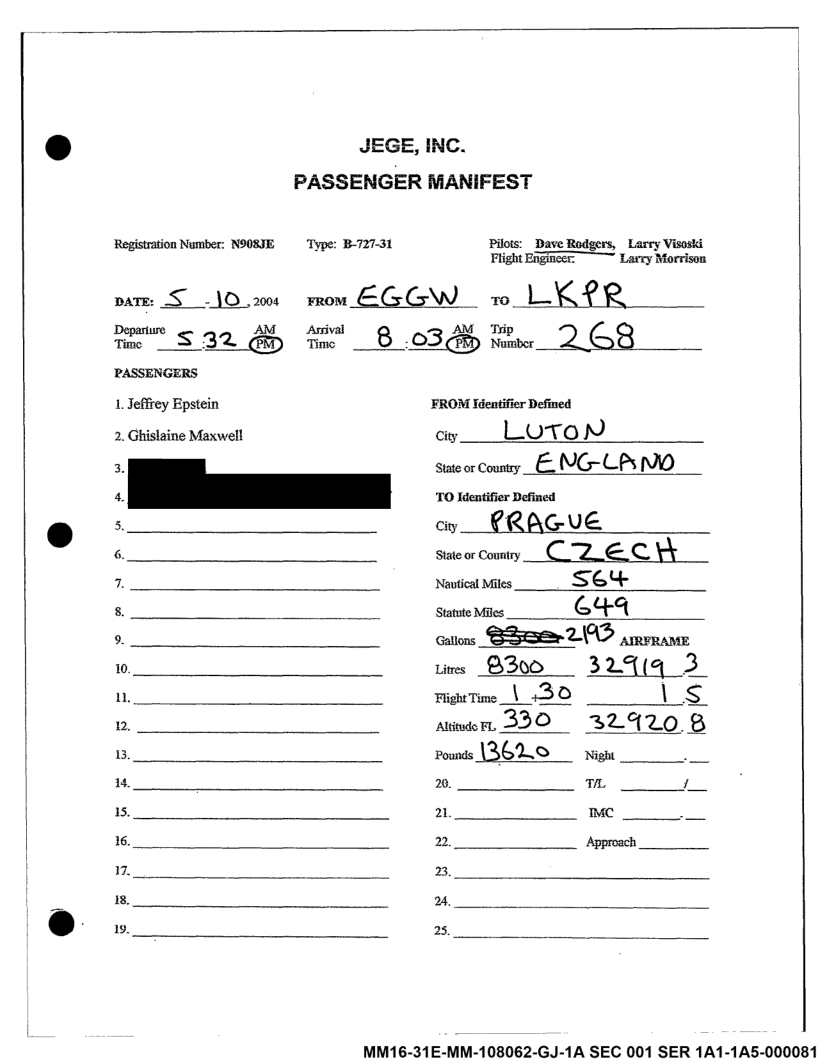 JEGE, INC.
PASSENGER MANIFEST
Registration Number: N908JE Type: B-727-31 Pilots: Dave Rodgers, Larry Visoski
Flight Engineer: Larry Morrison
DATE: 5 - 10, 2004 FROM EGGW TO LKPR
Departure Time 5:32 AM PM Arrival Time 8:03 AM PM Trip Number 268
PASSENGERS
1. Jeffrey Epstein FROM Identifier Defined
2. Ghislaine Maxwell City LUTON
3. State or Country ENGLAND
4. TO Identifier Defined
5. City PRAGUE
6. State or Country CZECH
7. Nautical Miles 564
8. Statute Miles 649
9. Gallons 8300 2193 AIRFRAME
10. Litres 8300 32919 3
11. Flight Time 1+30 1.5
12. Altitude FL 330 32920.8
13. Pounds 13620 Night .
14. 20. T/L /
15. 21. IMC .
16. 22. Approach
17. 23.
18. 24.
19. 25.
MM16-31E-MM-108062-GJ-1A SEC 001 SER 1A1-1A5-000081